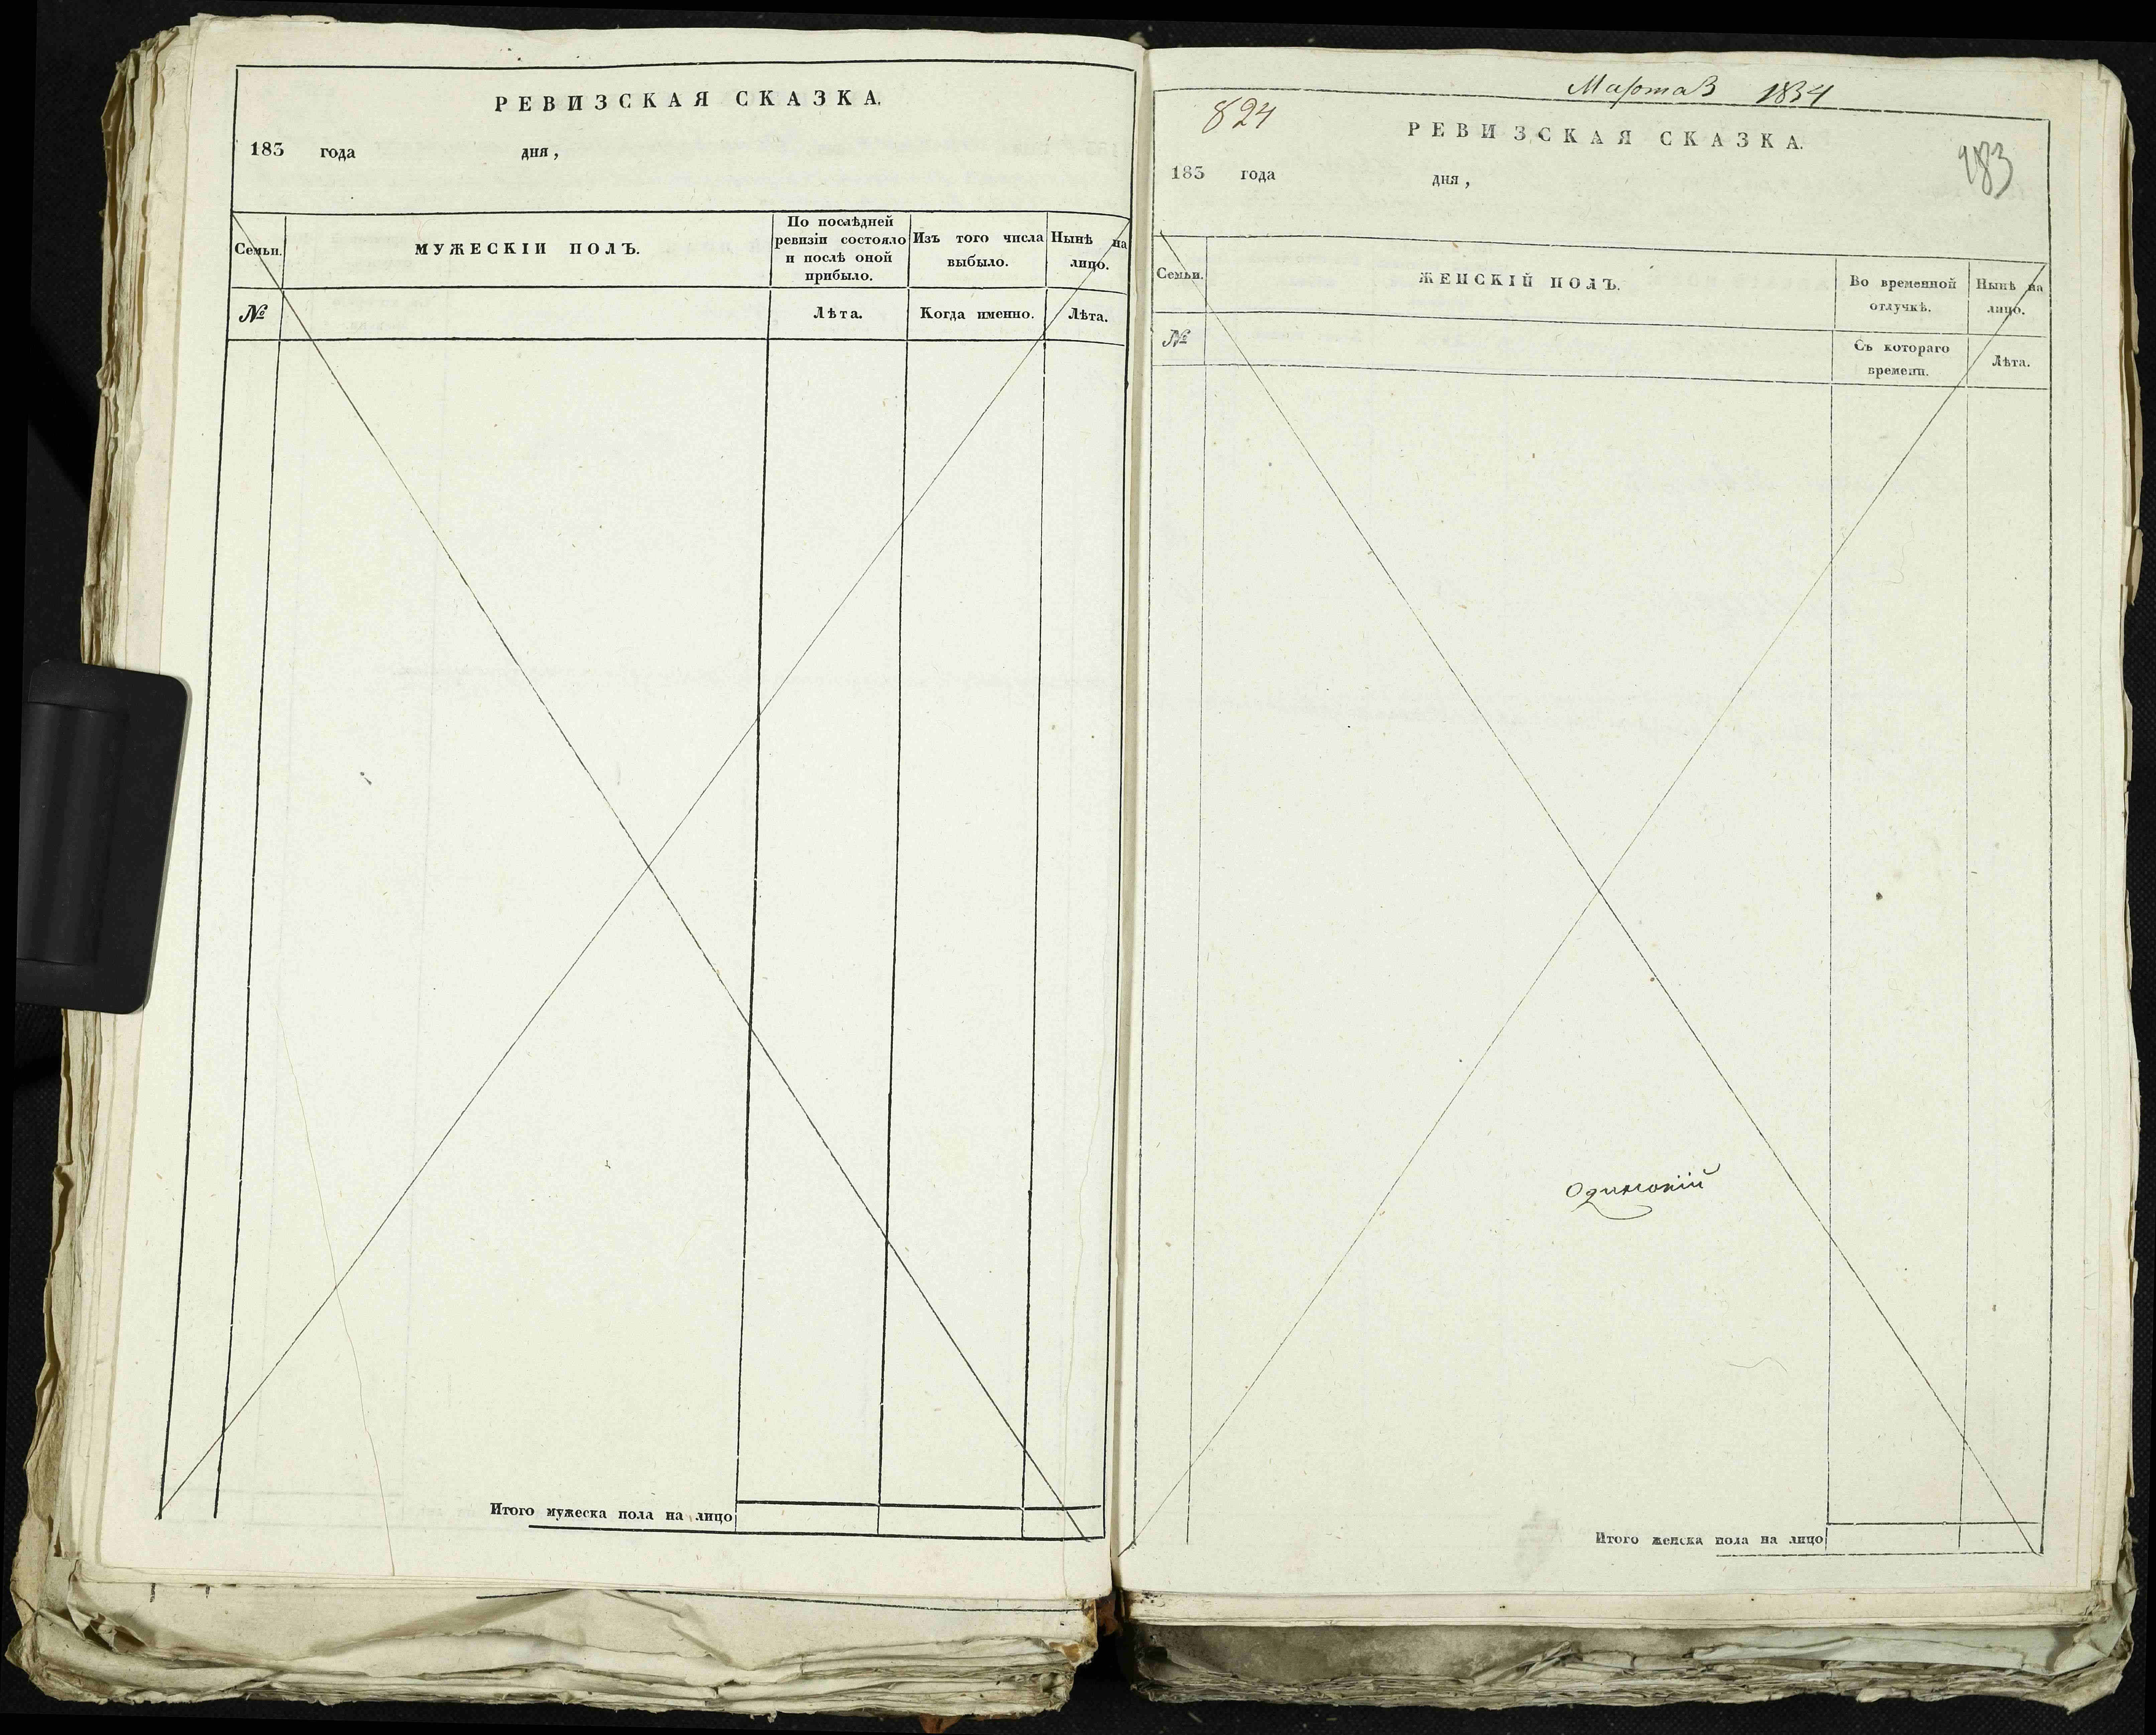 РЕВИЗСКАЯ СКАЗКА.
183 года дня,
Семьи.
МУЖЕСКІЙ ПОЛЪ.
По послѣдней
ревизіи состояло
и послѣ оной
прибыло.
Изъ того числа
выбыло.
Нынѣ на
лицо.
№
Лѣта.
Когда именно.
Лѣта.
Итого мужеска пола на лицо
Марта 3 1834
824
РЕВИЗСКАЯ СКАЗКА.
183
183 года дня,
Семьи.
ЖЕНСКІЙ ПОЛЪ.
Во временной
отлучкѣ.
Нынѣ на
лицо.
№
Съ котораго
времени.
Лѣта.
Одинокій
Итого женска пола на лицо